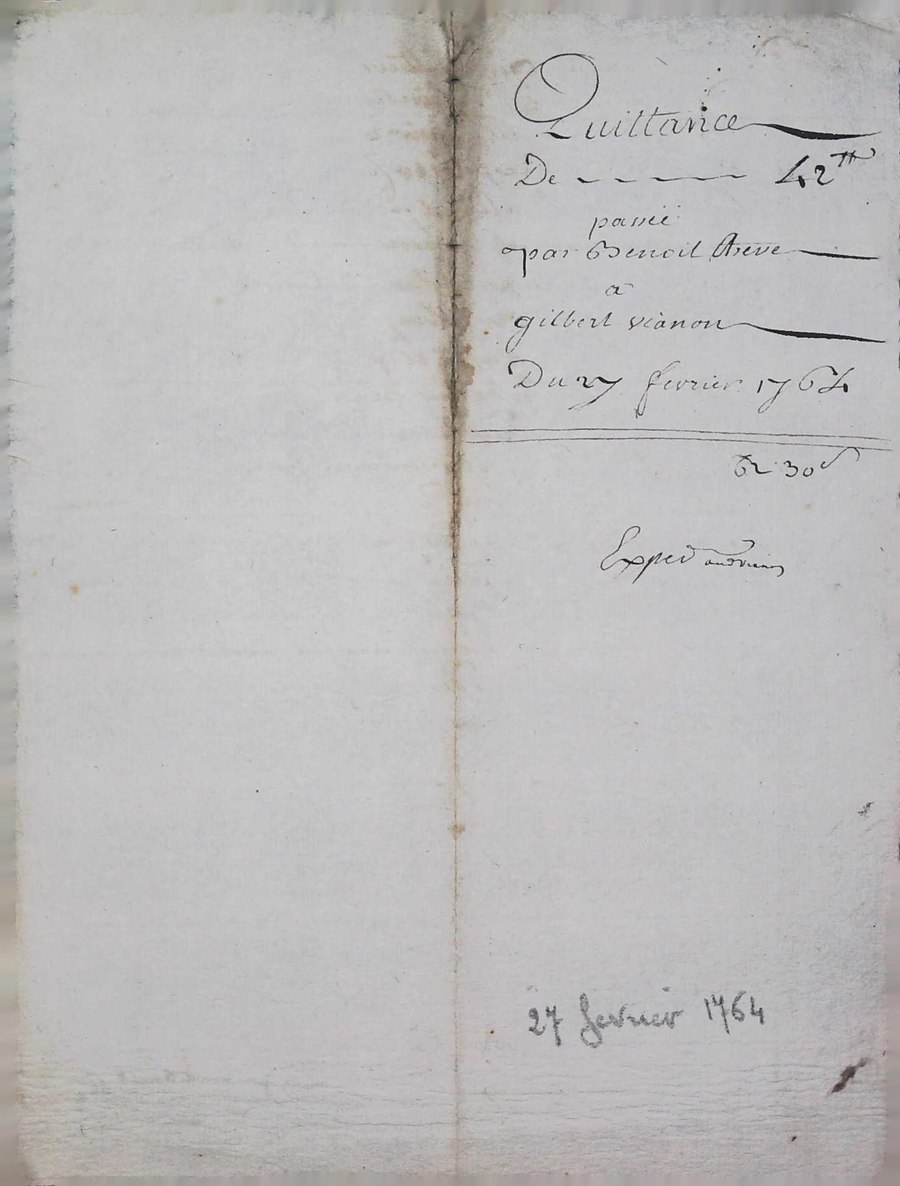 Quittance
De - - - - - - 42 tt
passée
par Benoit
a
gilbert vianon
Du 27 fevrier 1764
30 s
Exped
27 fevrier 1764